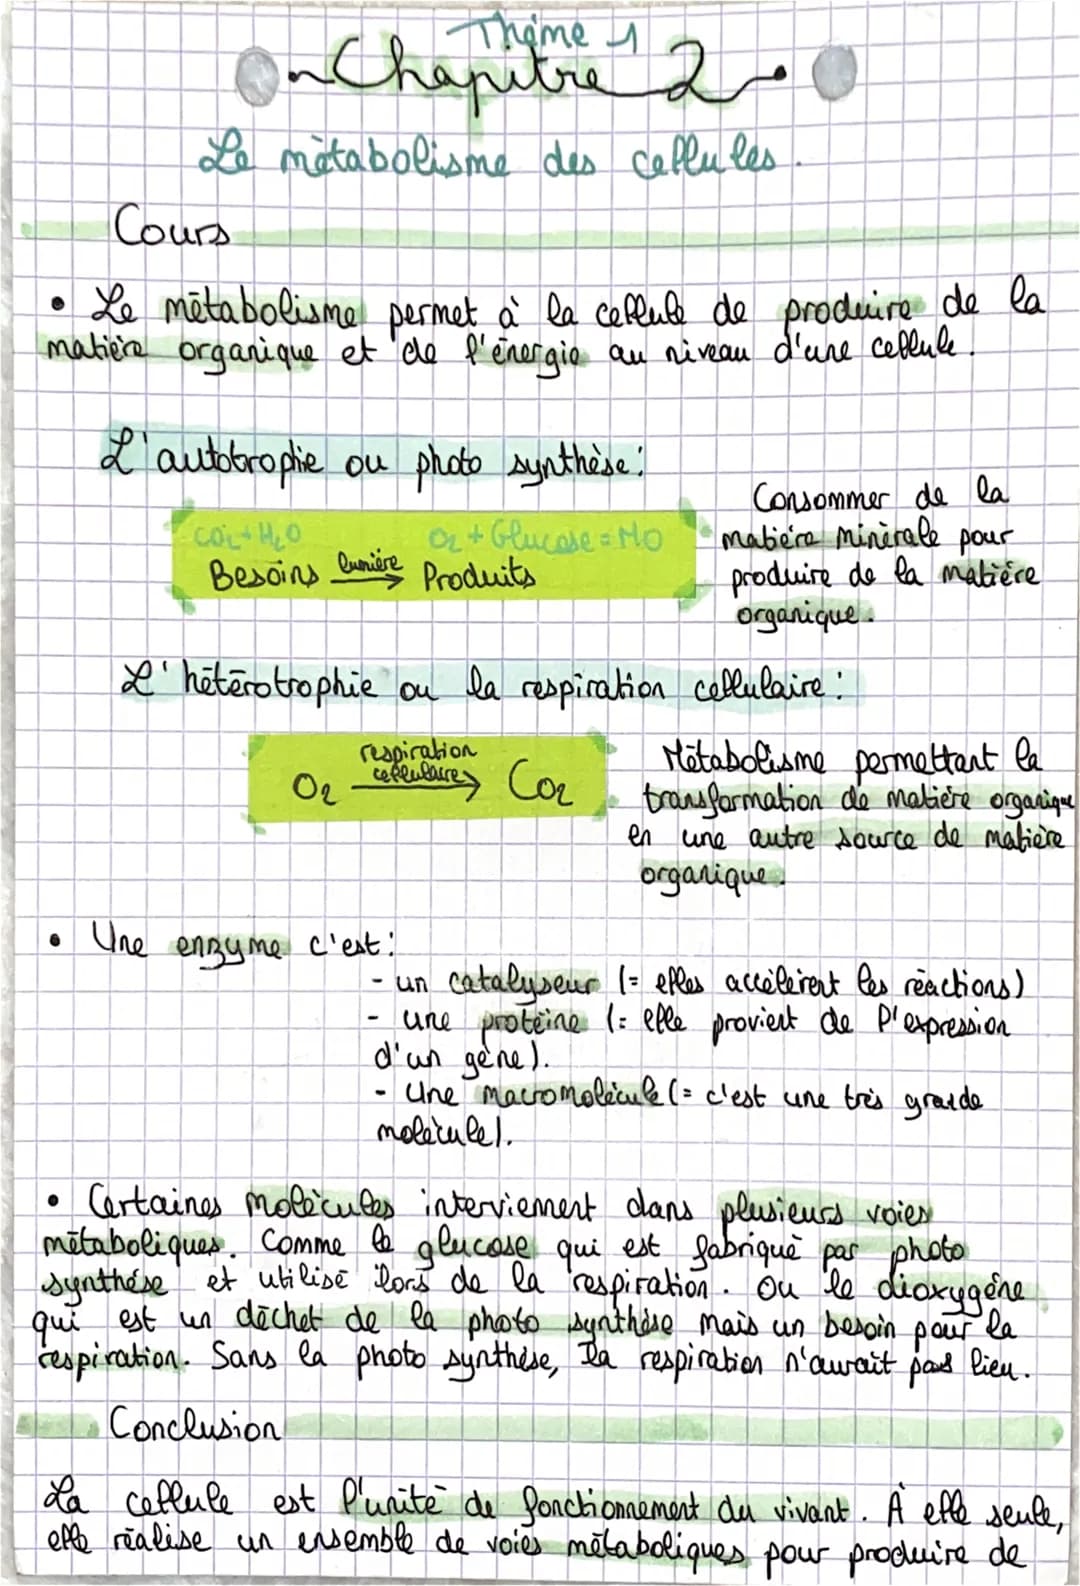 Thème 1
Chapitre 2
Le métabolisme des cellules.
Cours
• Le métabolisme permet à la cellule de produire de la
matière organique et de l'énergie au niveau d'une cellule.
L'autotrophie ou photo synthèse :
CO2 + H2O
O2 + Glucose = MO
Besoins lumière → Produits
Consommer de la
matière minérale pour
produire de la matière
organique.
L'hétérotrophie ou la respiration cellulaire :
O2 respiration cellulaire → CO2
Métabolisme permettant la
transformation de matière organique
en une autre source de matière
organique.
• Une enzyme c'est :
- un catalyseur (= elles accélèrent les réactions)
- une protéine (= elle provient de l'expression
d'un gène).
- Une macromolécule (= c'est une très grande
molécule).
• Certaines molécules interviennent dans plusieurs voies
métaboliques. Comme le glucose qui est fabriqué par photo
synthèse et utilisé lors de la respiration. Ou le dioxygène
qui est un déchet de la photo synthèse mais un besoin pour la
respiration. Sans la photo synthèse, la respiration n'aurait pas lieu.
Conclusion
La cellule est l'unité de fonctionnement du vivant. À elle seule,
elle réalise un ensemble de voies métaboliques pour produire de